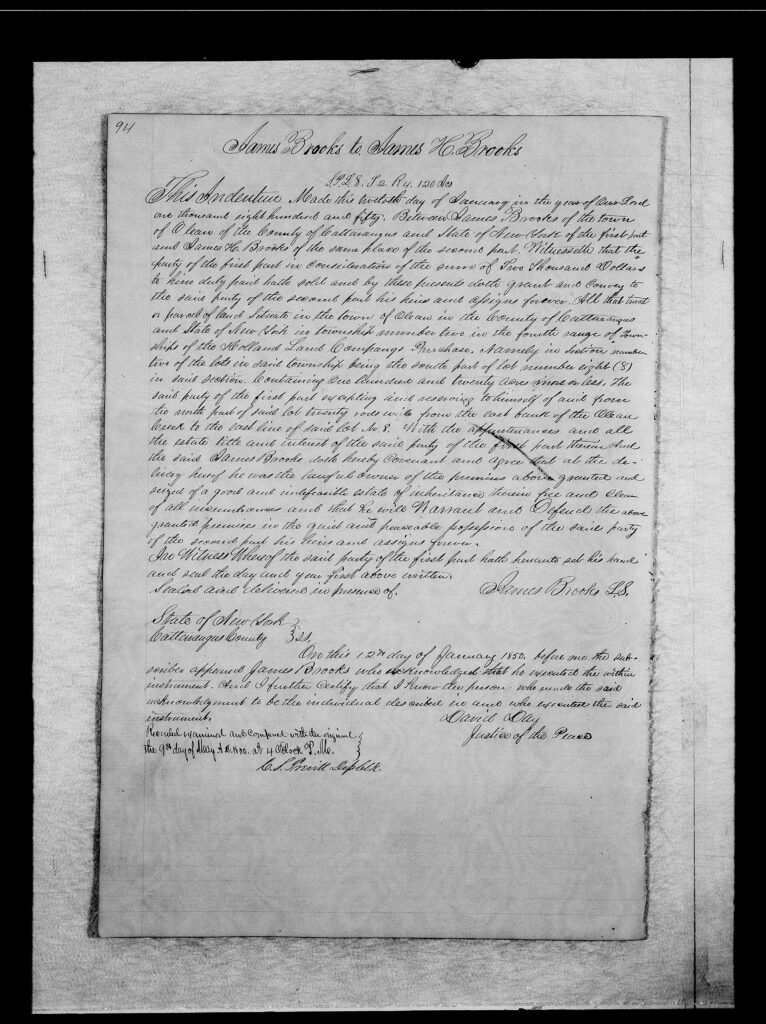 94
James Brooks to James H. Brooks
T. 2. R 4. 120 Acs
This Indenture Made this twelvth day of January in the year of Our Lord
one thousand eight hundred and fifty. Between James Brooks of the town
of Olean of the County of Cattaraugus and State of New York of the first part
and James H. Brooks of the same place of the second part. Witnesseth that the
party of the first part in consideration of the sum of Two Thousand Dollars
to him duly paid hath sold and by these presents doth grant and Convey to
the said party of the second part his heirs and assigns forever. All that tract
or parcel of land Situate in the town of Olean in the County of Cattaraugus
and State of New York in township number two in the fourth range of town-
ships of the Holland Land Companys Purchase, Namely in Section number
two of the lots in said township being the south part of lot number eight (8)
in said section. Containing One hundred and twenty acres more or less. The
said party of the first part excepting and reserving to himself of and from
the north part of said lot twenty rods wide from the east bank of the Olean
Creek to the east line of said lot No. 8. With the appurtenances and all
the estate title and interest of the said party of the first part therein And
the said James Brooks doth hereby Covenant and agree that at the de-
livery hereof he was the lawful owner of the premises above granted and
seized of a good and indefeasible estate of inheritance therein free and clear
of all incumbrances and that he will Warrant and Defend the above
granted premises in the quiet and peaceable possession of the said party
of the second part his heirs and assigns forever.
In Witness Whereof the said party of the first part hath hereunto set his hand
and seal the day and year first above written.
Sealed and delivered in presence of. James Brooks L.S.
State of New York
Cattaraugus County } ss.
On this 12th day of January 1850. before me the sub-
scriber appeared James Brooks who acknowledged that he executed the within
instrument. And I further Certify that I know the person who made the said
acknowledgment to be the individual described in and who executed the said
instrument. David Day
Justice of the Peace
Recorded examined and Compared with the original
the 9th day of May A.D. 1850. at 4 Oclock P. M.
Dep Clk.